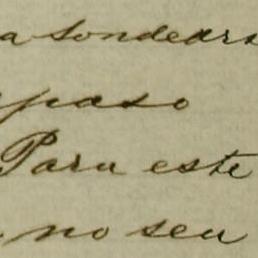 a sondears
paso
Para este
no seu